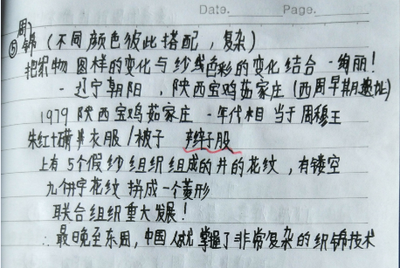 Date. Page.
周
⑤ 锦 (不同颜色彼此搭配，复杂)
把织物图样的变化与纱线色彩的变化结合 - 绚丽!
- 辽宁朝阳，陕西宝鸡茹家庄 (西周早期遗址)
1979 陕西宝鸡茹家庄 - 年代相当于周穆王
朱红 衣服/被子
上有5个假纱组织组成的井的花纹，有镂空
九个井字花纹 拼成一个菱形
联合组织重大发展!
∴最晚至东周，中国人就掌握了非常复杂的织锦技术